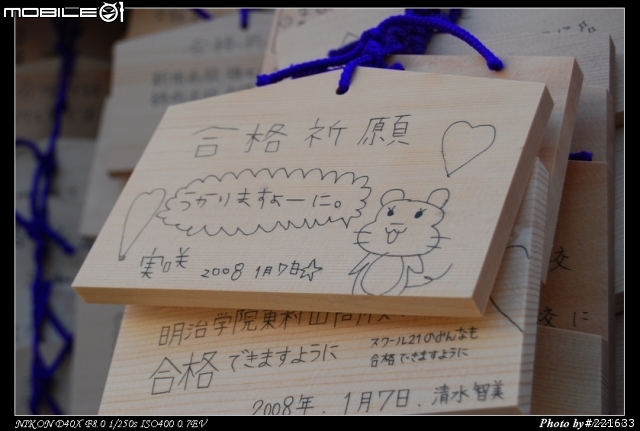 MOBILE01
合格祈願
うかりますよーに。
実咲
2008 1月7日☆
明治学院東村山高校
合格できますように
スクール21のみんなも
合格できますように
2008年.1月7日.清水智美
交
交に
NIKON D40X F8.0 1/250s ISO400 0.7EV
Photo by#221633